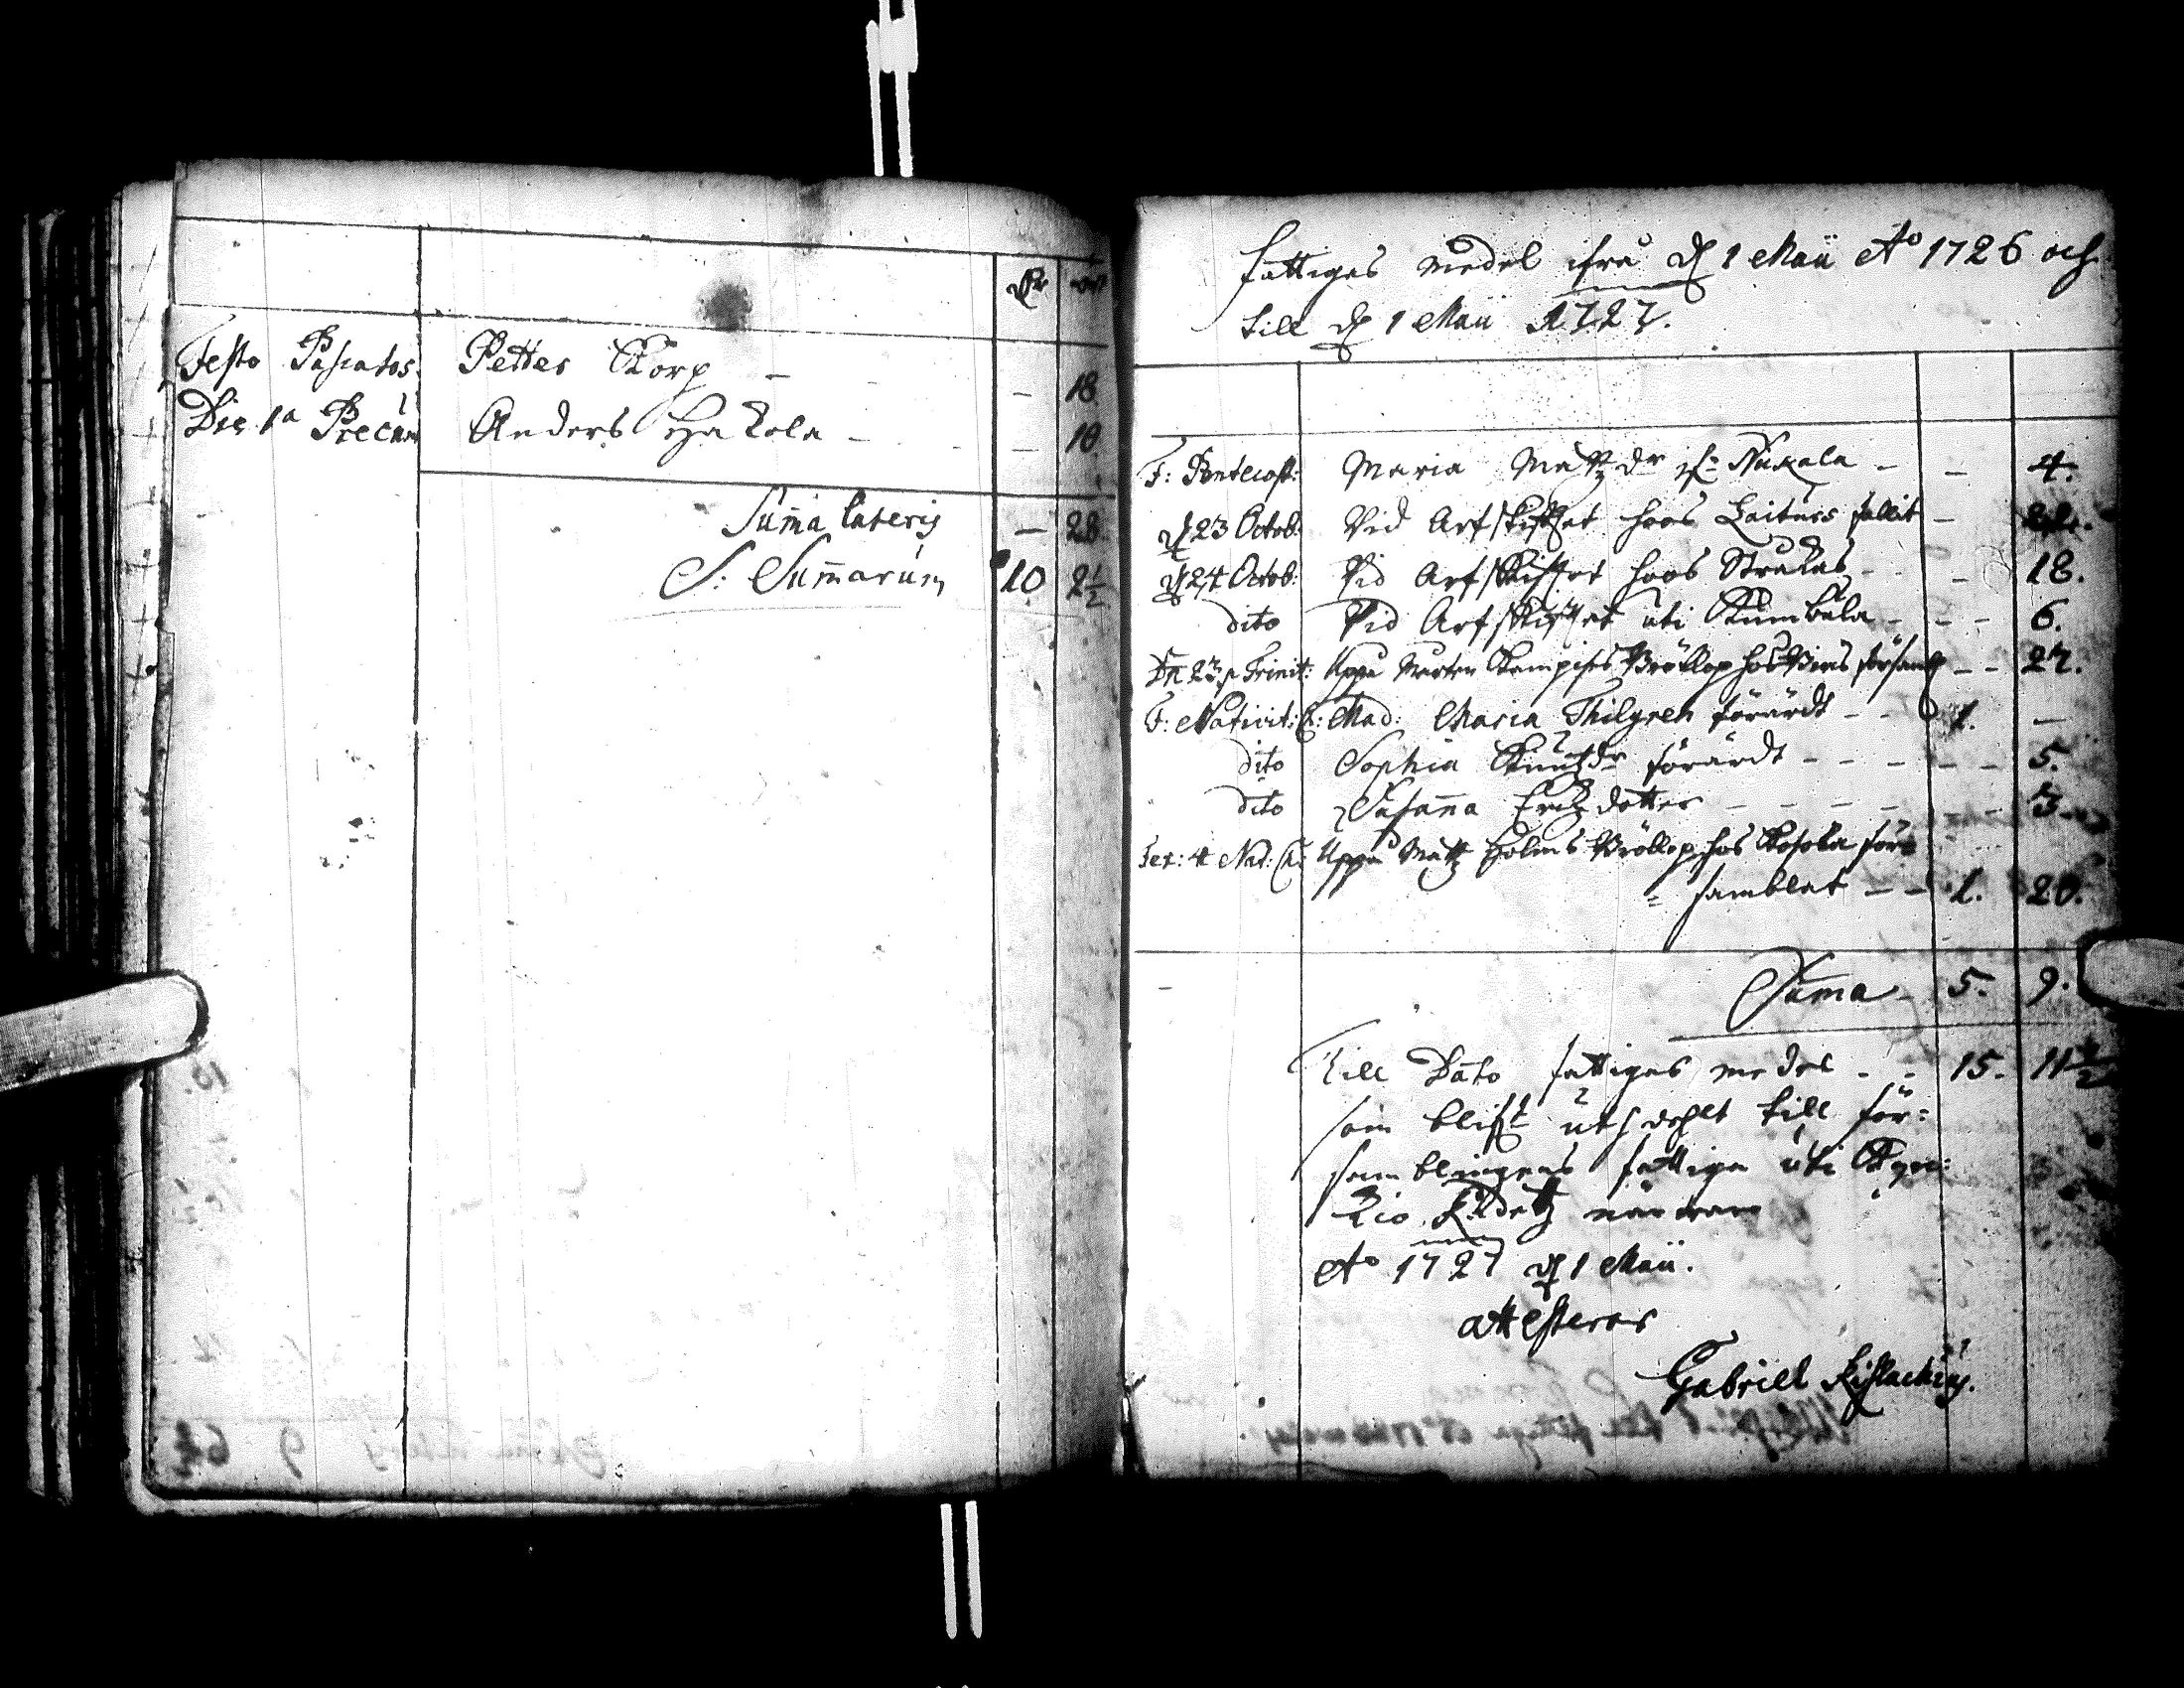 Dr öre
Festo Paschatos. Petter Korp — — 18.
Die 1a Precum Anders Hakola — — 10.
Suma lateris — 28.
S: Sumarum 10 2½
Fattiges medel ifrå d. 1 Maii Ao 1726 och
till d. 1 Maii 1727.
F: Pentecost: Maria Mattzdr fr: — — 4.
d. 23 Octob: Vid Arfskifftet hoos fallit —
d. 24 Octob: Vid Arfskifftet hoos — — 18.
dito Vid Arfskifftet uti Kumbula — — 6.
Dn 23 p Trinit: Uppå Morten Bröllop hos församl — — 27.
F: Nativit: C: Mad: Maria Thilgren förärdt — — 1. —
dito Sophia Knutzdr förärdt — — — — 5.
dito Susanna Erichzdotter — — — — 3.
Fer: 4 Nat: Ch: Uppå Matz Holms Bröllop hos för=
=samblat — — 1. 20.
Suma — 5. 9.
Till Dato fattiges medel — — 15. 11½
som blifvit uthdehlt till för=
samblingens fattiga uti
närwaro
Ao 1727 d. 1 Maii.
attesterar
Gabriel